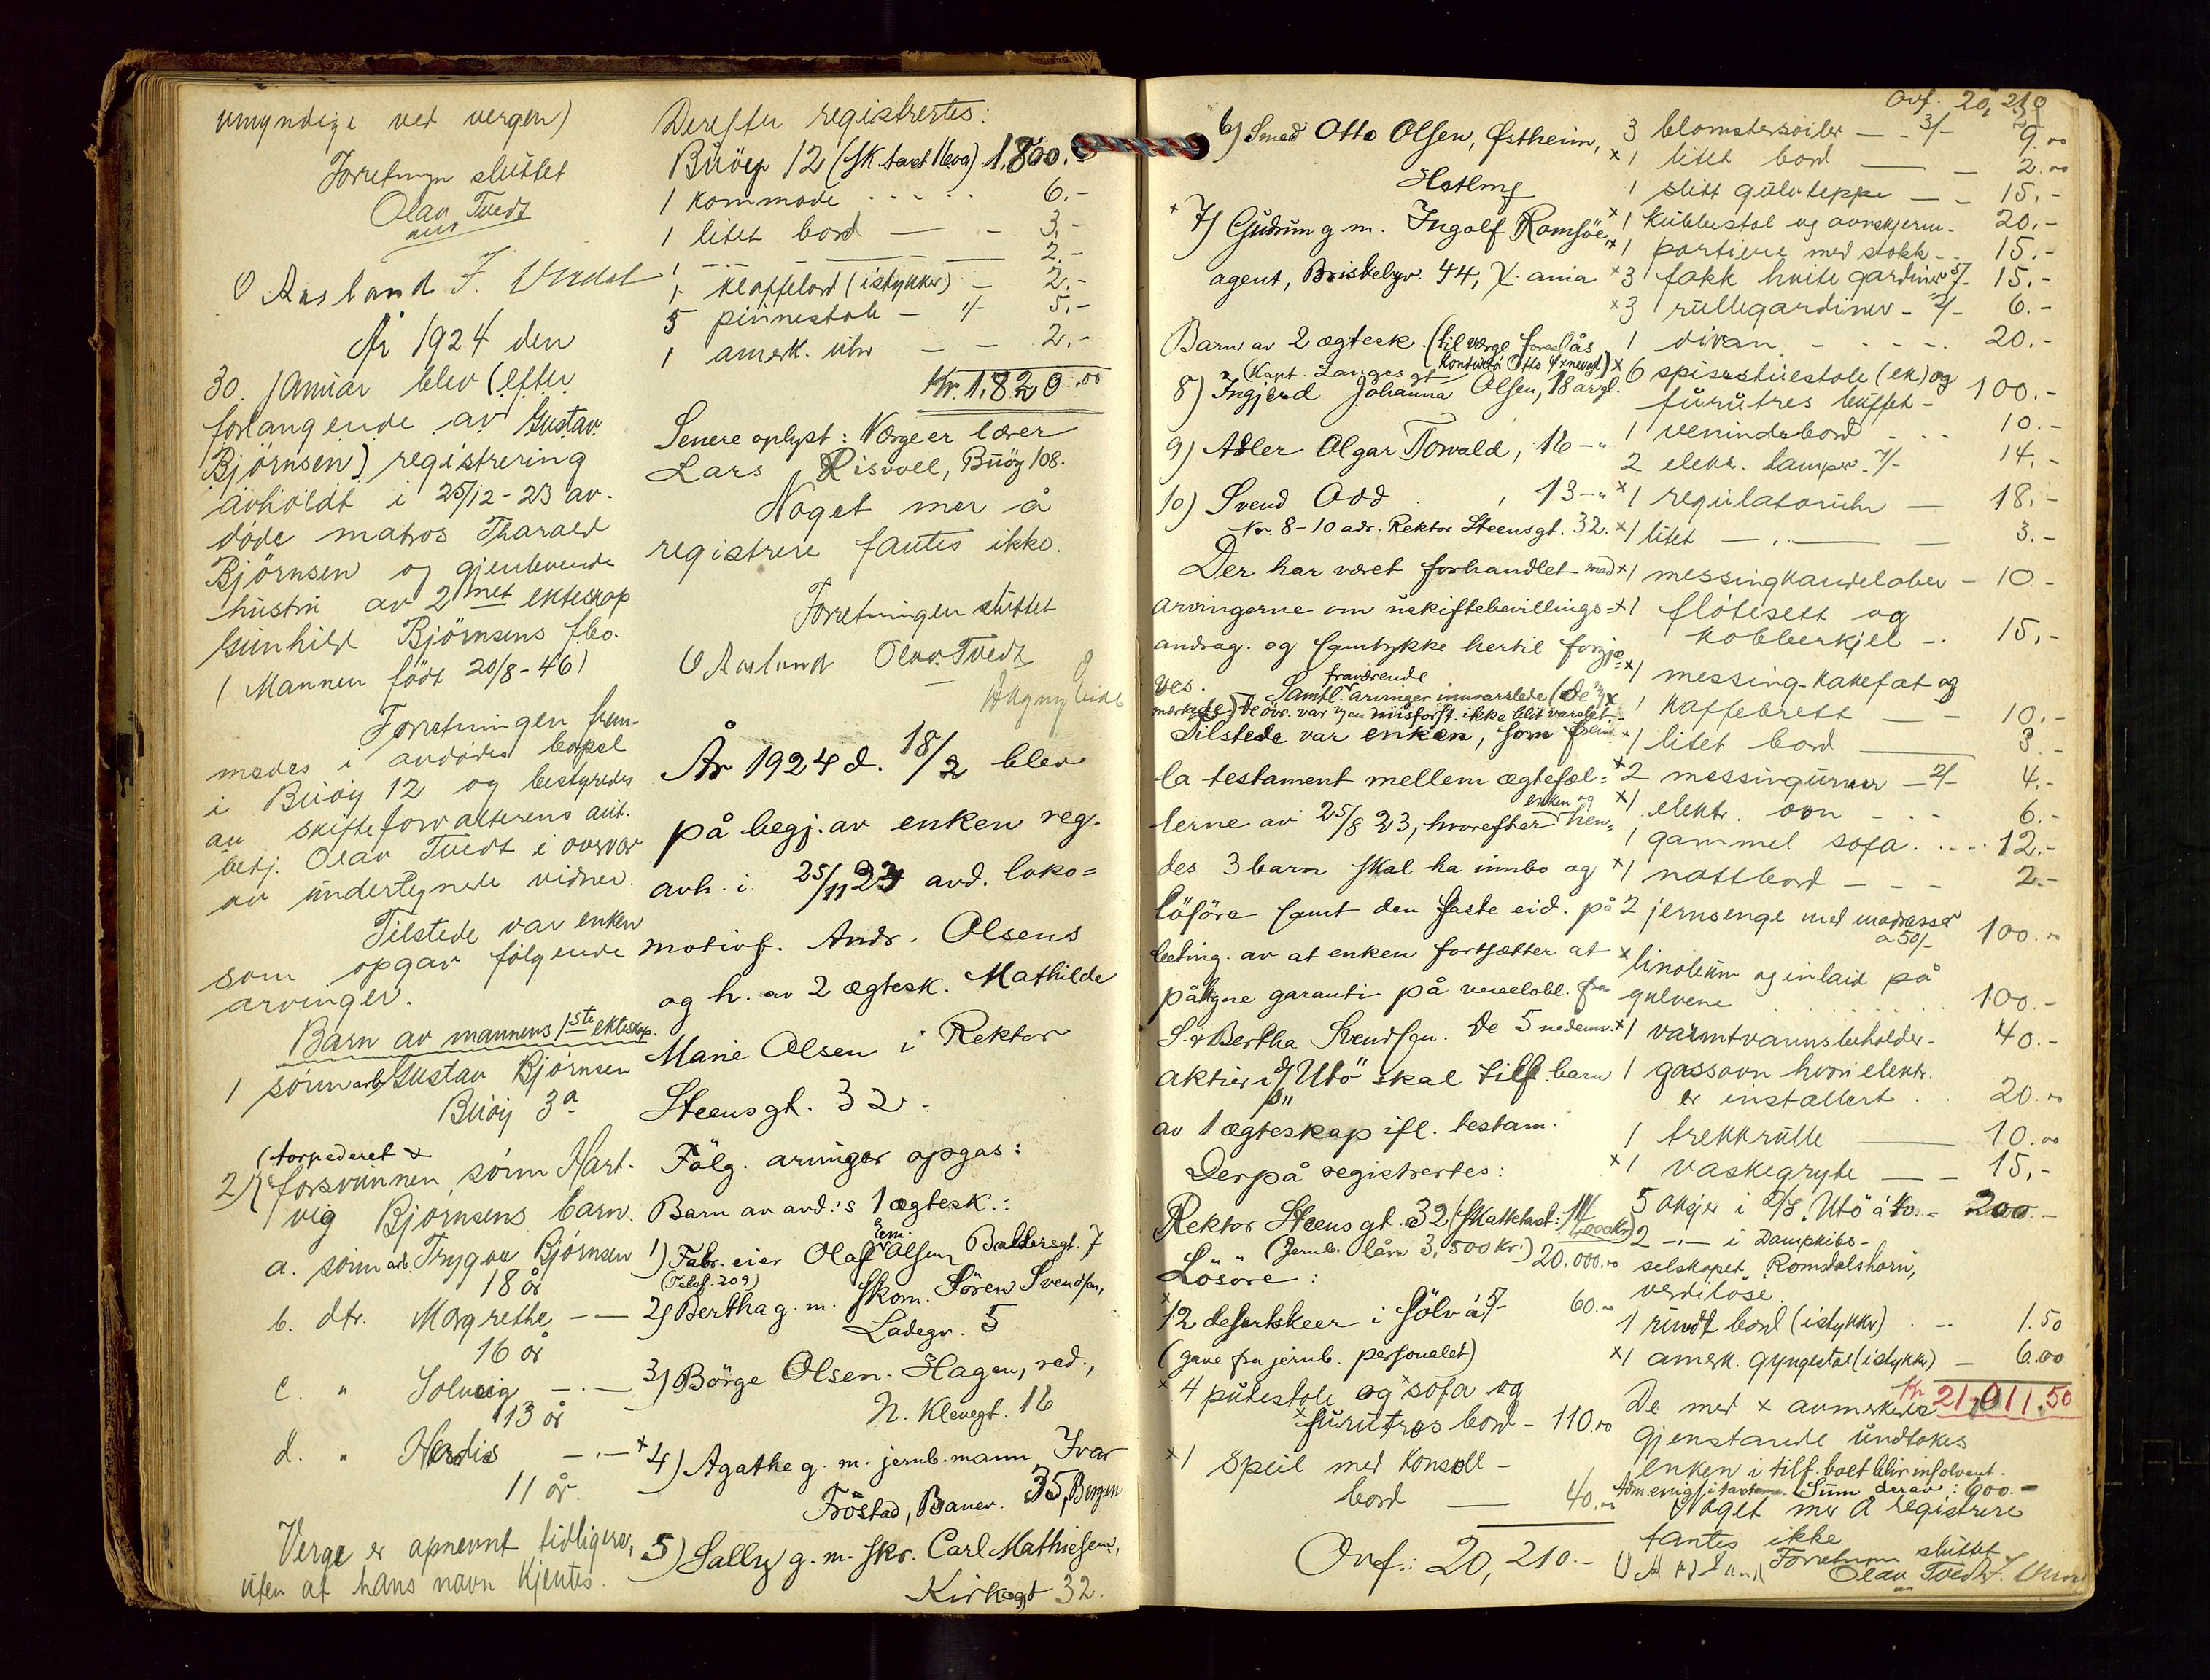 umyndige ved vergen)
Forretningen sluttet
Olav Tvedt
aut
O Aasland
År 1924 den
30. januar blev (efter
forlangende av Gustav
Bjørnsen) registrering
avholdt i 25/12-23 av-
døde matros Tharald
Bjørnsen og gjenlevende
hustru av 2net ekteskap
Gunhild Bjørnsens fbo.
(Mannen født 20/8-46)
Forretningen frem-
medes i avdødes bopel
i Buøy 12 og bestyredes
av skifteforvalterens aut.
betj. Olav Tvedt i overvær
av undertegnede vidner.
Tilstede var enken
som opgav følgende
arvinger.
Barn av mannens 1ste ekteskap.
1 sønn arb. Gustav Bjørnsen
Buøy 3a
(torpederet &
2) forsvunnen sønn Hart-
vig Bjørnsens barn.
a. sønn arb. Trygve Bjørnsen
18 år
b. dtr. Margrethe — —
16 år
c. " Solveig — . —
13 år
d. " Herdis — . —
11 år
Verge er opnevnt tidligere,
uten at hans navn kjentes.
Derefter registrertes:
Buöy 12 (sk. takst 11000) 1.800.-
1 kommode . . . . . 6.-
1 litet bord — - 3.-
1 — — — 2.-
1 klaffebord (istykker) — 2.-
5 pinnestole — 1/- 5.-
1 amerk. uhr — — 2.-
Kr. 1,820.00
Senere oplyst: Værge er lærer
Lars Risvoll, Buöy 108.
Noget mer å
registrere fantes ikke.
Forretningen sluttet
O Aasland Olav Tvedt
År 1924 d. 18/2 blev
på begj. av enken reg.
avh. i 25/11 23 avd. loko=
motivf. Andr. Olsens
og h. av 2 ægtesk. Mathilde
Marie Olsen i Rektor
Steensgt. 32.
Fölg. arvinger opgas:
Barn av avd.'s 1 ægtesk.:
1) Fabr. eier Olaf Em. Olsen, Baldersgt. 7
(Telef. 209)
2) Bertha g. m. skom. Sören Svendsen,
Ladegv. 5
3) Börge Olsen-Hagen, red.,
N. Klevegt. 16
x 4) Agathe g. m. jernb. mann Ivar
Fröstad, Banev. 35, Bergen
5) Sally g. m. skr. Carl Mathiesen,
Kirkegt 32.
6) Smed Otto Olsen, Østheim,
Hetland
x 7) Gudrun g. m. Ingolf Ramsöe,
agent, Briskebyv. 44, X.ania
Barn av 2 ægtesk. (til værge foreslås
8) Ingjerd Johanna Olsen, 18 år gl.
9) Adler Olgar Torvald, 16 - "
10) Svend Odd , 13 - "
Nr. 8-10 adr. Rektor Steensgt. 32.
Der har været forhandlet med
arvingerne om uskiftebevillings=
andrag. og samtykke hertil forgjæ=
ves. Samtl. fraværende arvinger innvarslede
Tilstede var enken, som frem
la testament mellem ægtefæl=
lerne av 25/8 23, hvorefter enken og hen=
des 3 barn skal ha innbo og
lösöre samt den faste eid. på
beting. av at enken fortsætter at
påtegne garanti på vexelobl. fra
S. & Bertha Svendsen. De 5 nedenv.
aktier i d/s "Utö" skal tilf. barn
av 1 ægteskap ifl. testam.
Derpå registrertes:
Rektor Steens gt. 32 (Skattetakst:
(Jernb. lån 3,500 kr.) 20.000.00
Lösöre:
x 12 desertskeer i sölv à 5/- 60.00
(gave fra jernb. personalet)
x 4 putestole og x sofa og
x furutres bord - 110.00
x 1 speil med konsoll-
bord — 40.00
Ovf.: 20,210.-
Ovf. 20,210
3 blomstersöiler — - 3/- 9.00
x 1 litet bord — - 2.00
1 slitt gulvteppe — - 15.-
x 1 kubbestol og ovnskjerm - 20.-
x 1 portiere med stokk - 15.-
x 3 fakk hvite gardiner 5/- 15.-
x 3 rullegardiner - 2/- 6.-
1 divan - - - - - 20.-
x 6 spisestuestole (ek) og
furutres buffet - 100.-
1 venindebord - - - 10.-
2 elektr. lamper 7/- 14.-
x 1 regulatoruhr — 18.-
x 1 litet — . — — 3.-
x 1 messingkandelaber - 10.-
x 1 flötesett og
kobberkjel - 15.-
x 1 messing-kakefat og
1 kaffebrett — - 10.-
x 1 litet bord — 3.-
x 2 messingurner - 2/- 4.-
x 1 elektr. ovn - - - 6.-
1 gammel sofa . . . . 12.-
x 1 nattbord - - - 2.-
2 jernsenge med madrasser
à 50/- 100.00
x linoleum og inlaid på
gulvene . . . . . 100.-
x 1 varmtvannsbeholder - 40.-
1 gassovn hvori elektr.
er installert . . 20.00
1 trekkrulle — 10.00
x 1 vaskegryte — - 15.-
5 aksjer i D/S. Utö à 40.- 200.-
2 -.- i Dampskibs-
selskapet Romsdalshorn,
verdilöse.
1 rundt bord (istykker) . - 1.50
x 1 amerk. gyngestol (istykker) — 6.00
Kr. 21,011.50
De med x avmerkede
gjenstande undtokes
enken i tilf. boet blir insolvent.
Sum derav: 600.-
Noget mer å registrere
fantes ikke
Forretningen sluttet
O Aasland Olav Tvedt